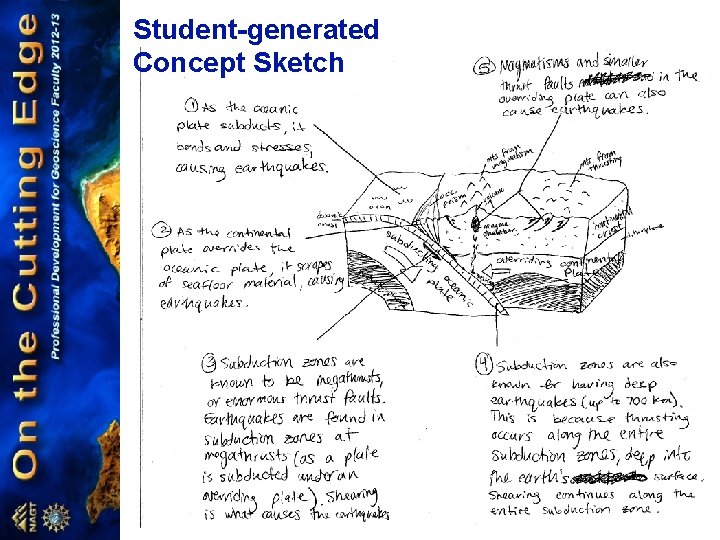 On the Cutting Edge
Professional Development for Geoscience Faculty 2012-13
NAGT
Student-generated
Concept Sketch
① As the oceanic
plate subducts, it
bends and stresses,
causing earthquakes.
② As the continental
plate overrides the
oceanic plate, it scrapes
of seafloor material, causing
earthquakes.
③ Subduction zones are
known to be megathrusts,
or enormous thrust faults.
Earthquakes are found in
subduction zones at
megathrusts (as a plate
is subducted under an
overriding plate). Shearing
is what causes the earthquakes
④ Subduction zones are also
known for having deep
earthquakes (up to 700 km).
This is because thrusting
occurs along the entire
subduction zones, deep into
the earth's surface.
Shearing continues along the
entire subduction zone.
⑤ Magmatisms and smaller
thrust faults in the
overriding plate can also
cause earthquakes.
mts from
magmatism
mts from
thrusting
acc.
prism
oceanic
crust
magma
chamber
continental
crust
subducting oceanic
plate
overriding continental
plate